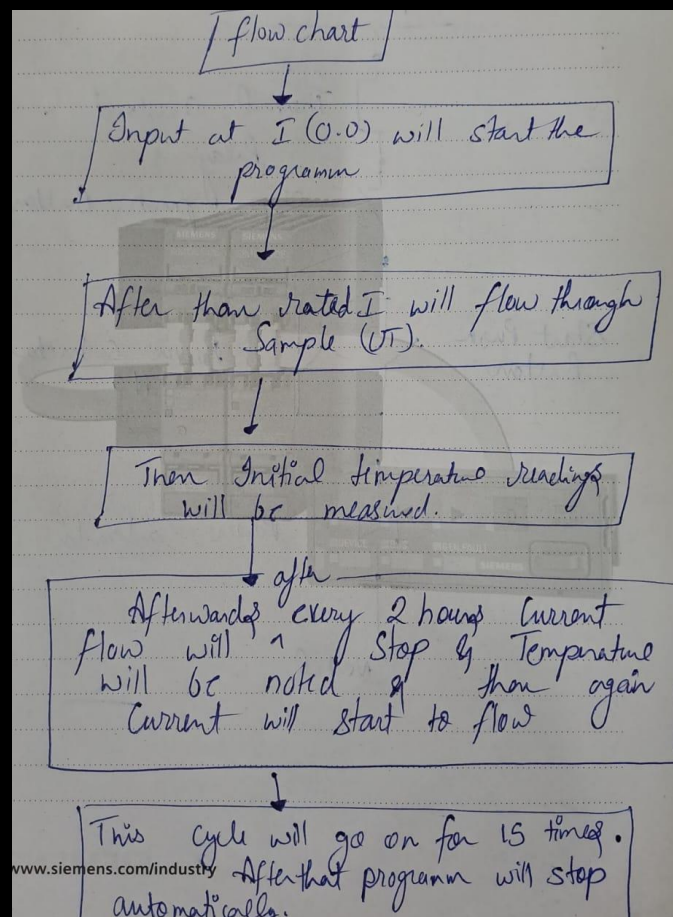 flow chart
Input at I (0.0) will start the
programm
After than rated I will flow through
Sample (UT).
Then Initial temperature readings
will be measured.
after
Afterwards every 2 hours Current
flow will ^ stop & Temperature
will be noted & then again
Current will start to flow
This cycle will go on for 15 times.
www.siemens.com/industry After that programm will stop
automatically.